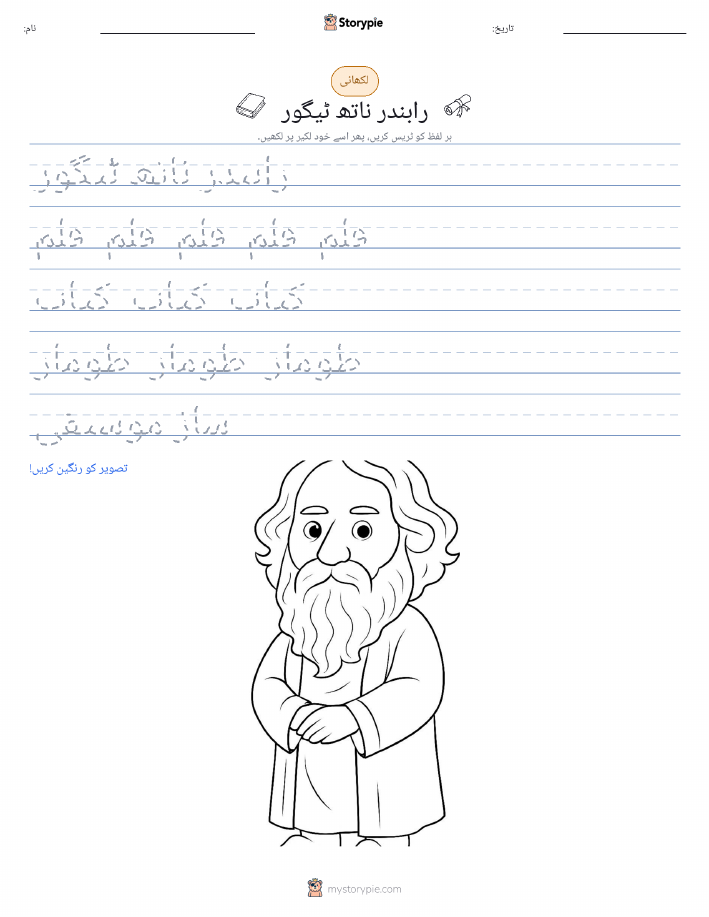 نام:
Storypie
تاریخ:
لکھائی
رابندر ناتھ ٹیگور
ہر لفظ کو ٹریس کریں، پھر اسے خود لکیر پر لکھیں۔
رابندر ناتھ ٹیگور
قلم قلم قلم قلم قلم
کتاب کتاب کتاب
طومار طومار طومار
ساز موسیقی
تصویر کو رنگین کریں!
mystorypie.com